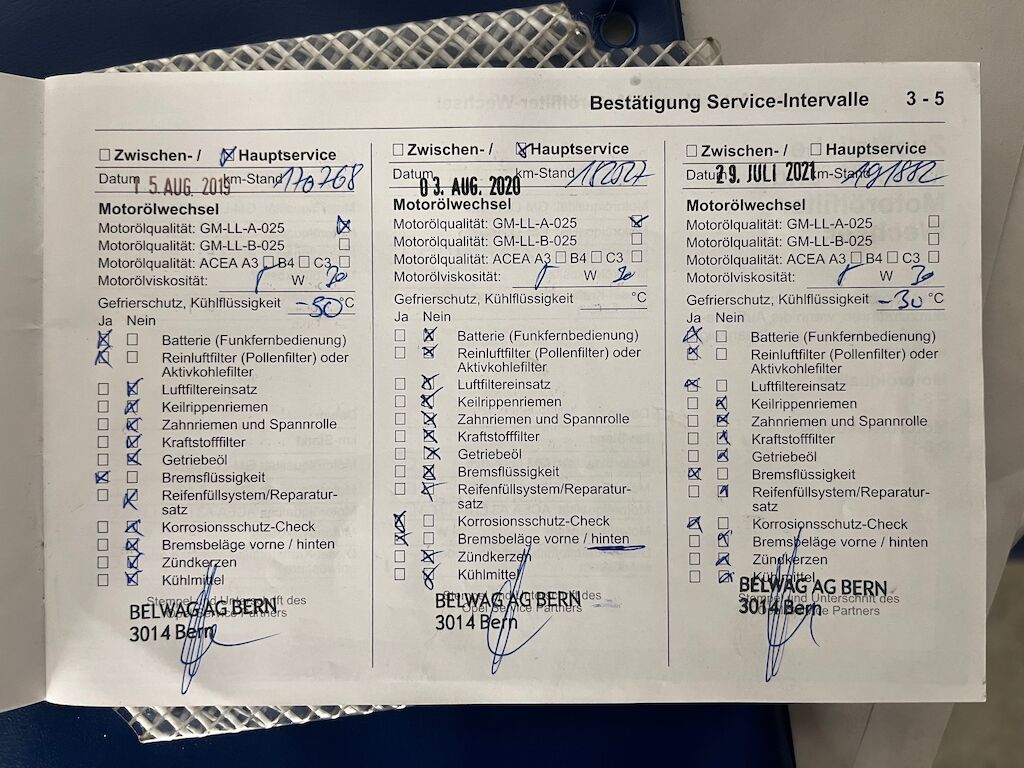 Bestätigung Service-Intervalle 3 - 5
Zwischen- / Hauptservice
Datum 15. AUG. 2019 km-Stand 170768
Motorölwechsel
Motorölqualität: GM-LL-A-025
Motorölqualität: GM-LL-B-025
Motorölqualität: ACEA A3 B4 C3
Motorölviskosität: W 30
Gefrierschutz, Kühlflüssigkeit °C
Ja Nein
Batterie (Funkfernbedienung)
Reinluftfilter (Pollenfilter) oder
Aktivkohlefilter
Luftfiltereinsatz
Keilrippenriemen
Zahnriemen und Spannrolle
Kraftstofffilter
Getriebeöl
Bremsflüssigkeit
Reifenfüllsystem/Reparatur-
satz
Korrosionsschutz-Check
Bremsbeläge vorne / hinten
Zündkerzen
Kühlmittel
Stempel und Unterschrift des
Opel Service Partners
BELWAG AG BERN
3014 Bern
Zwischen- / Hauptservice
Datum 03. AUG. 2020 km-Stand
Motorölwechsel
Motorölqualität: GM-LL-A-025
Motorölqualität: GM-LL-B-025
Motorölqualität: ACEA A3 B4 C3
Motorölviskosität: W 30
Gefrierschutz, Kühlflüssigkeit °C
Ja Nein
Batterie (Funkfernbedienung)
Reinluftfilter (Pollenfilter) oder
Aktivkohlefilter
Luftfiltereinsatz
Keilrippenriemen
Zahnriemen und Spannrolle
Kraftstofffilter
Getriebeöl
Bremsflüssigkeit
Reifenfüllsystem/Reparatur-
satz
Korrosionsschutz-Check
Bremsbeläge vorne / hinten
Zündkerzen
Kühlmittel
Stempel und Unterschrift des
Opel Service Partners
BELWAG AG BERN
3014 Bern
Zwischen- / Hauptservice
Datum 29. JULI 2021 km-Stand 191882
Motorölwechsel
Motorölqualität: GM-LL-A-025
Motorölqualität: GM-LL-B-025
Motorölqualität: ACEA A3 B4 C3
Motorölviskosität: W 30
Gefrierschutz, Kühlflüssigkeit -30 °C
Ja Nein
Batterie (Funkfernbedienung)
Reinluftfilter (Pollenfilter) oder
Aktivkohlefilter
Luftfiltereinsatz
Keilrippenriemen
Zahnriemen und Spannrolle
Kraftstofffilter
Getriebeöl
Bremsflüssigkeit
Reifenfüllsystem/Reparatur-
satz
Korrosionsschutz-Check
Bremsbeläge vorne / hinten
Zündkerzen
Kühlmittel
Stempel und Unterschrift des
Opel Service Partners
BELWAG AG BERN
3014 Bern